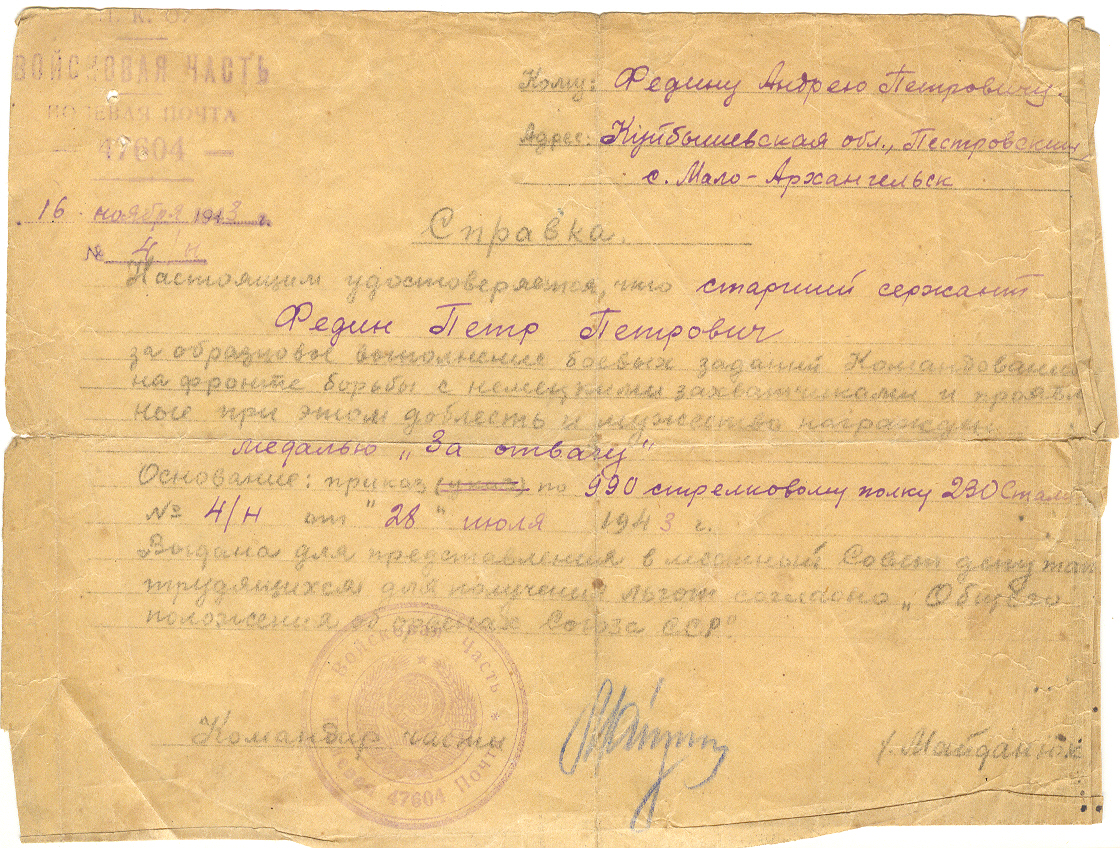 Н.К.О.
ВОЙСКОВАЯ ЧАСТЬ
ПОЛЕВАЯ ПОЧТА
— 47604 —
16 ноября 1943 г.
№ 4/н
Кому: Федину Андрею Петровичу.
Адрес: Куйбышевская обл., Пестровский
с. Мало-Архангельск
Справка.
Настоящим удостоверяется, что старший сержант
Федин Петр Петрович
за образцовое выполнение боевых заданий Командования
на фронте борьбы с немецкими захватчиками и проявлен
ные при этом доблесть и мужество награжден
медалью „За отвагу"
Основание: приказ (указ) по 990 стрелковому полку 230 Стал
№ 4/н от "28" июля 1943 г.
Выдана для представления в местный Совет депутат
трудящихся для получения льгот согласно „Общего
положения об орденах Союза ССР".
Командир части
Майданюк
Войсковая Часть * Полевая Почта 47604 *